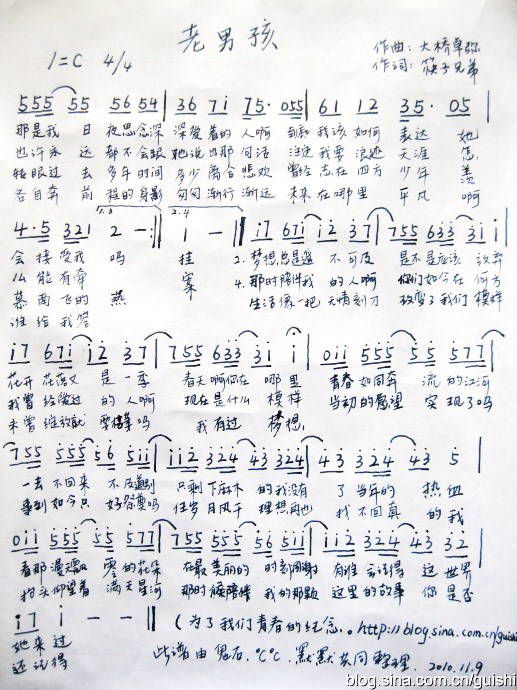 老男孩
1=C 4/4
作曲:大桥卓弥
作词:筷子兄弟
555 55 56 54 | 36 7i 75· 055 | 61 12 35· 05
那是我 日 夜思念深 深爱着的 人啊 到底 我该如何 表达 她
也许永 远 都不会跟 她说出那 句话 注定 我要 浪迹 天涯 怎
转眼过 去 多年时间 多少离合 悲欢 曾经 志在四方 少年 羡
各自奔 前 程的身影 匆匆渐行 渐远 未来在哪里 平凡 啊
4·5 321 2 - :|| 1 - |
1.3
2.4
i7 67i i2 37 | 755 633 3i i |
会 接受我 吗 挂 2. 梦想总是遥 不可及 是不是应该 放弃
么 能有牵 案 4. 那时陪伴我 的人啊 你们如今在 何方
慕 南飞的 燕 生活像一把 无情刻刀 改变了我们 模样
谁 给我答
i7 67i i2 37 | 755 633 3i i | 0ii 555 55 577 |
花开 花落又 是一季 春天啊你在 哪里 青春如同奔 流的江河
我曾经爱过 的 人啊 现在是什么 模样 当初的愿望 实现了吗
未曾绽放就 要枯萎吗 我有过 梦想
755 555 56 5ii | ii2 324 43 324 | 43 324 43 5 |
一去 不回来 不及道别 只剩下麻木 的我没有 了 当年的 热血
事到如今只 好祭奠吗 任岁月风干 理想再也 找不回真 的我
0ii 555 55 577 | 755 555 56 5ii | ii2 324 43 32 |
看那漫天飘 零的花朵 在最美丽的 时刻凋谢 有谁会记得 这世界
抬头仰望着 满天星河 那时候陪伴 我的那颗 这里的故事 你是否
i7 i - - ||
她来过
还记得
(为了我们青春的纪念。http://blog.sina.com.cn/guishi
此谱由鬼石、℃℃、默默共同整理. 2010.11.9
blog.sina.com.cn/guishi